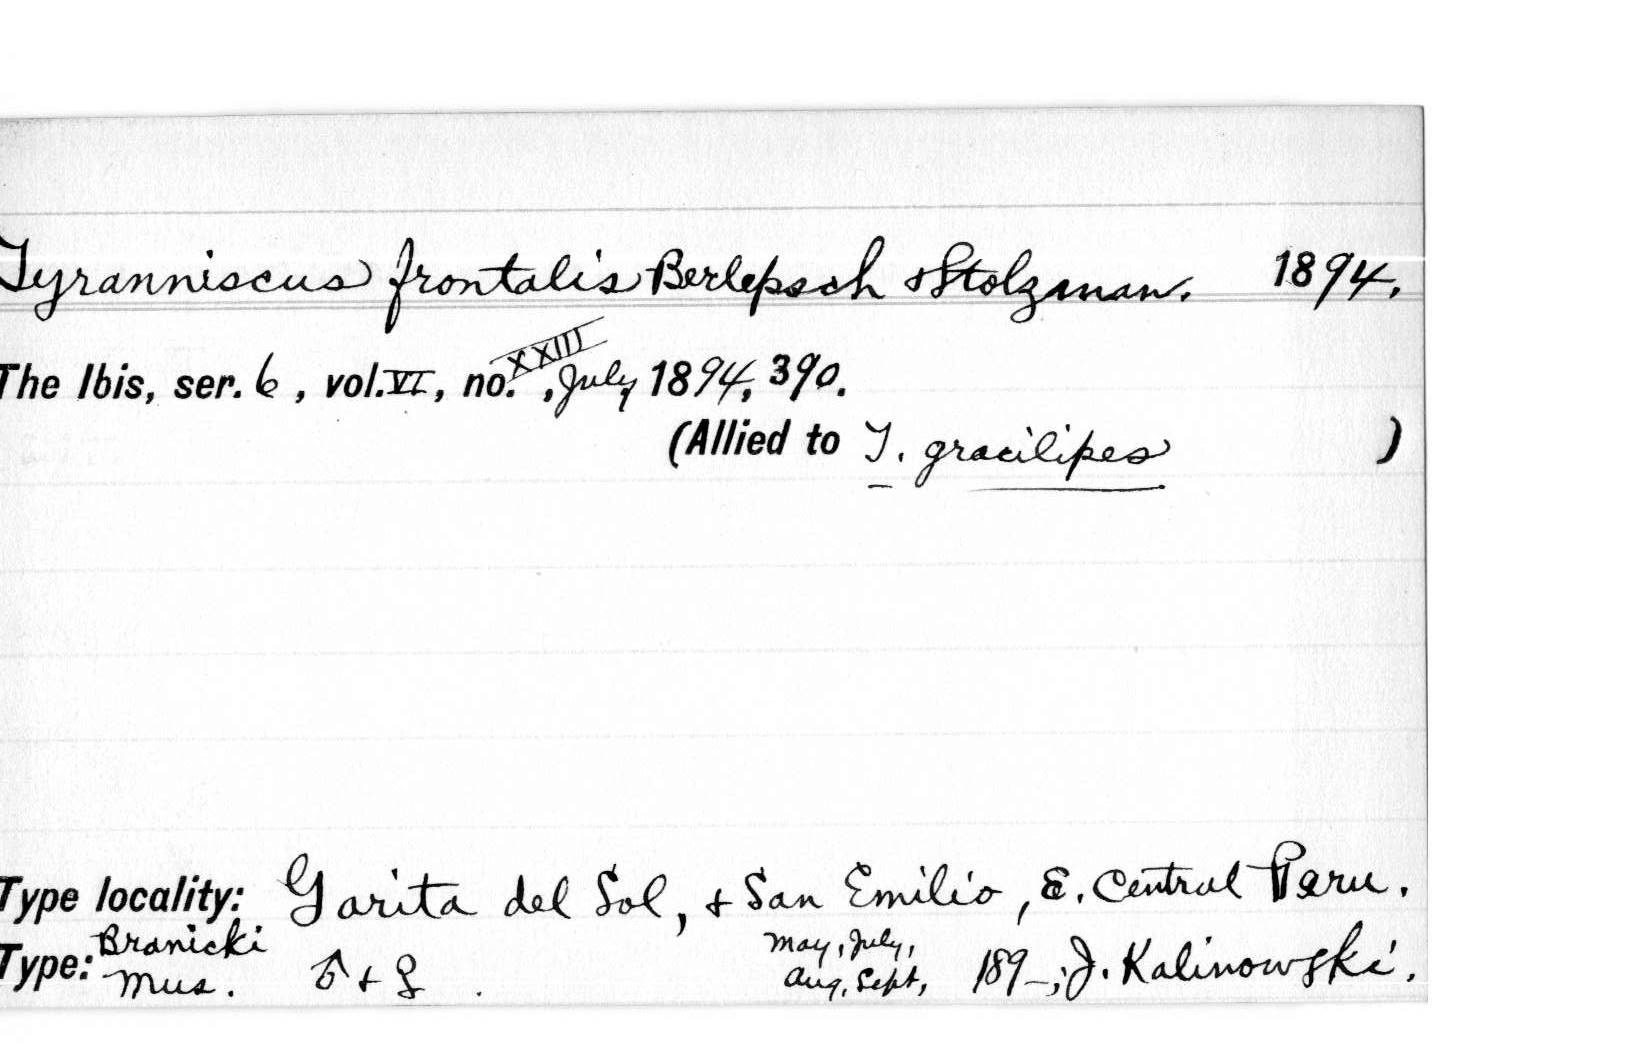 Tyranniscus frontalis Berlepsch & Stolzman. 1894.
The Ibis, ser. 6, vol. VI, no. XXIII, July, 1894, 390.
(Allied to T. gracilipes )
Type locality: Garita del Sol, & San Emilio, E. Central Peru.
Type: Branicki Mus. ♂ + ♀ . May, July, Aug, Sept, 189-; J. Kalinowski.